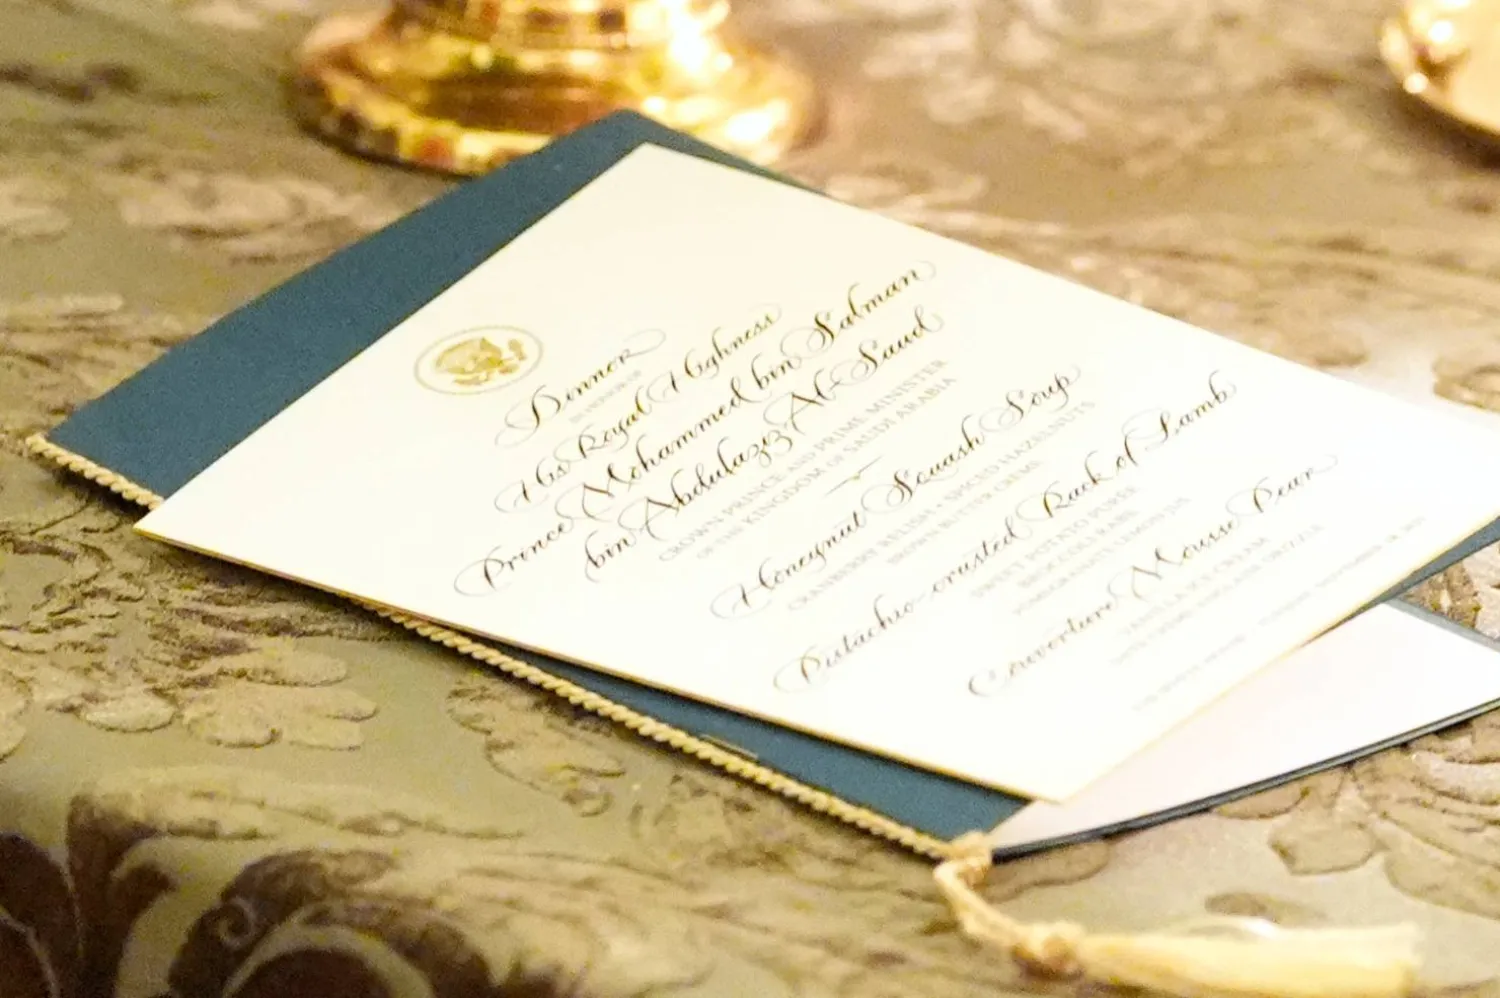 Dinner
IN HONOR OF
His Royal Highness
Prince Mohammed bin Salman
bin Abdulaziz Al-Saud
CROWN PRINCE AND PRIME MINISTER
OF THE KINGDOM OF SAUDI ARABIA
Honeynut Squash Soup
CRANBERRY RELISH • SPICED HAZELNUTS
BROWN BUTTER CRÈME
Pistachio-crusted Rack of Lamb
SWEET POTATO PURÉE
BROCCOLI RABE
POMEGRANATE LEMON JUS
Couverture Mousse Pear
VANILLA ICE CREAM